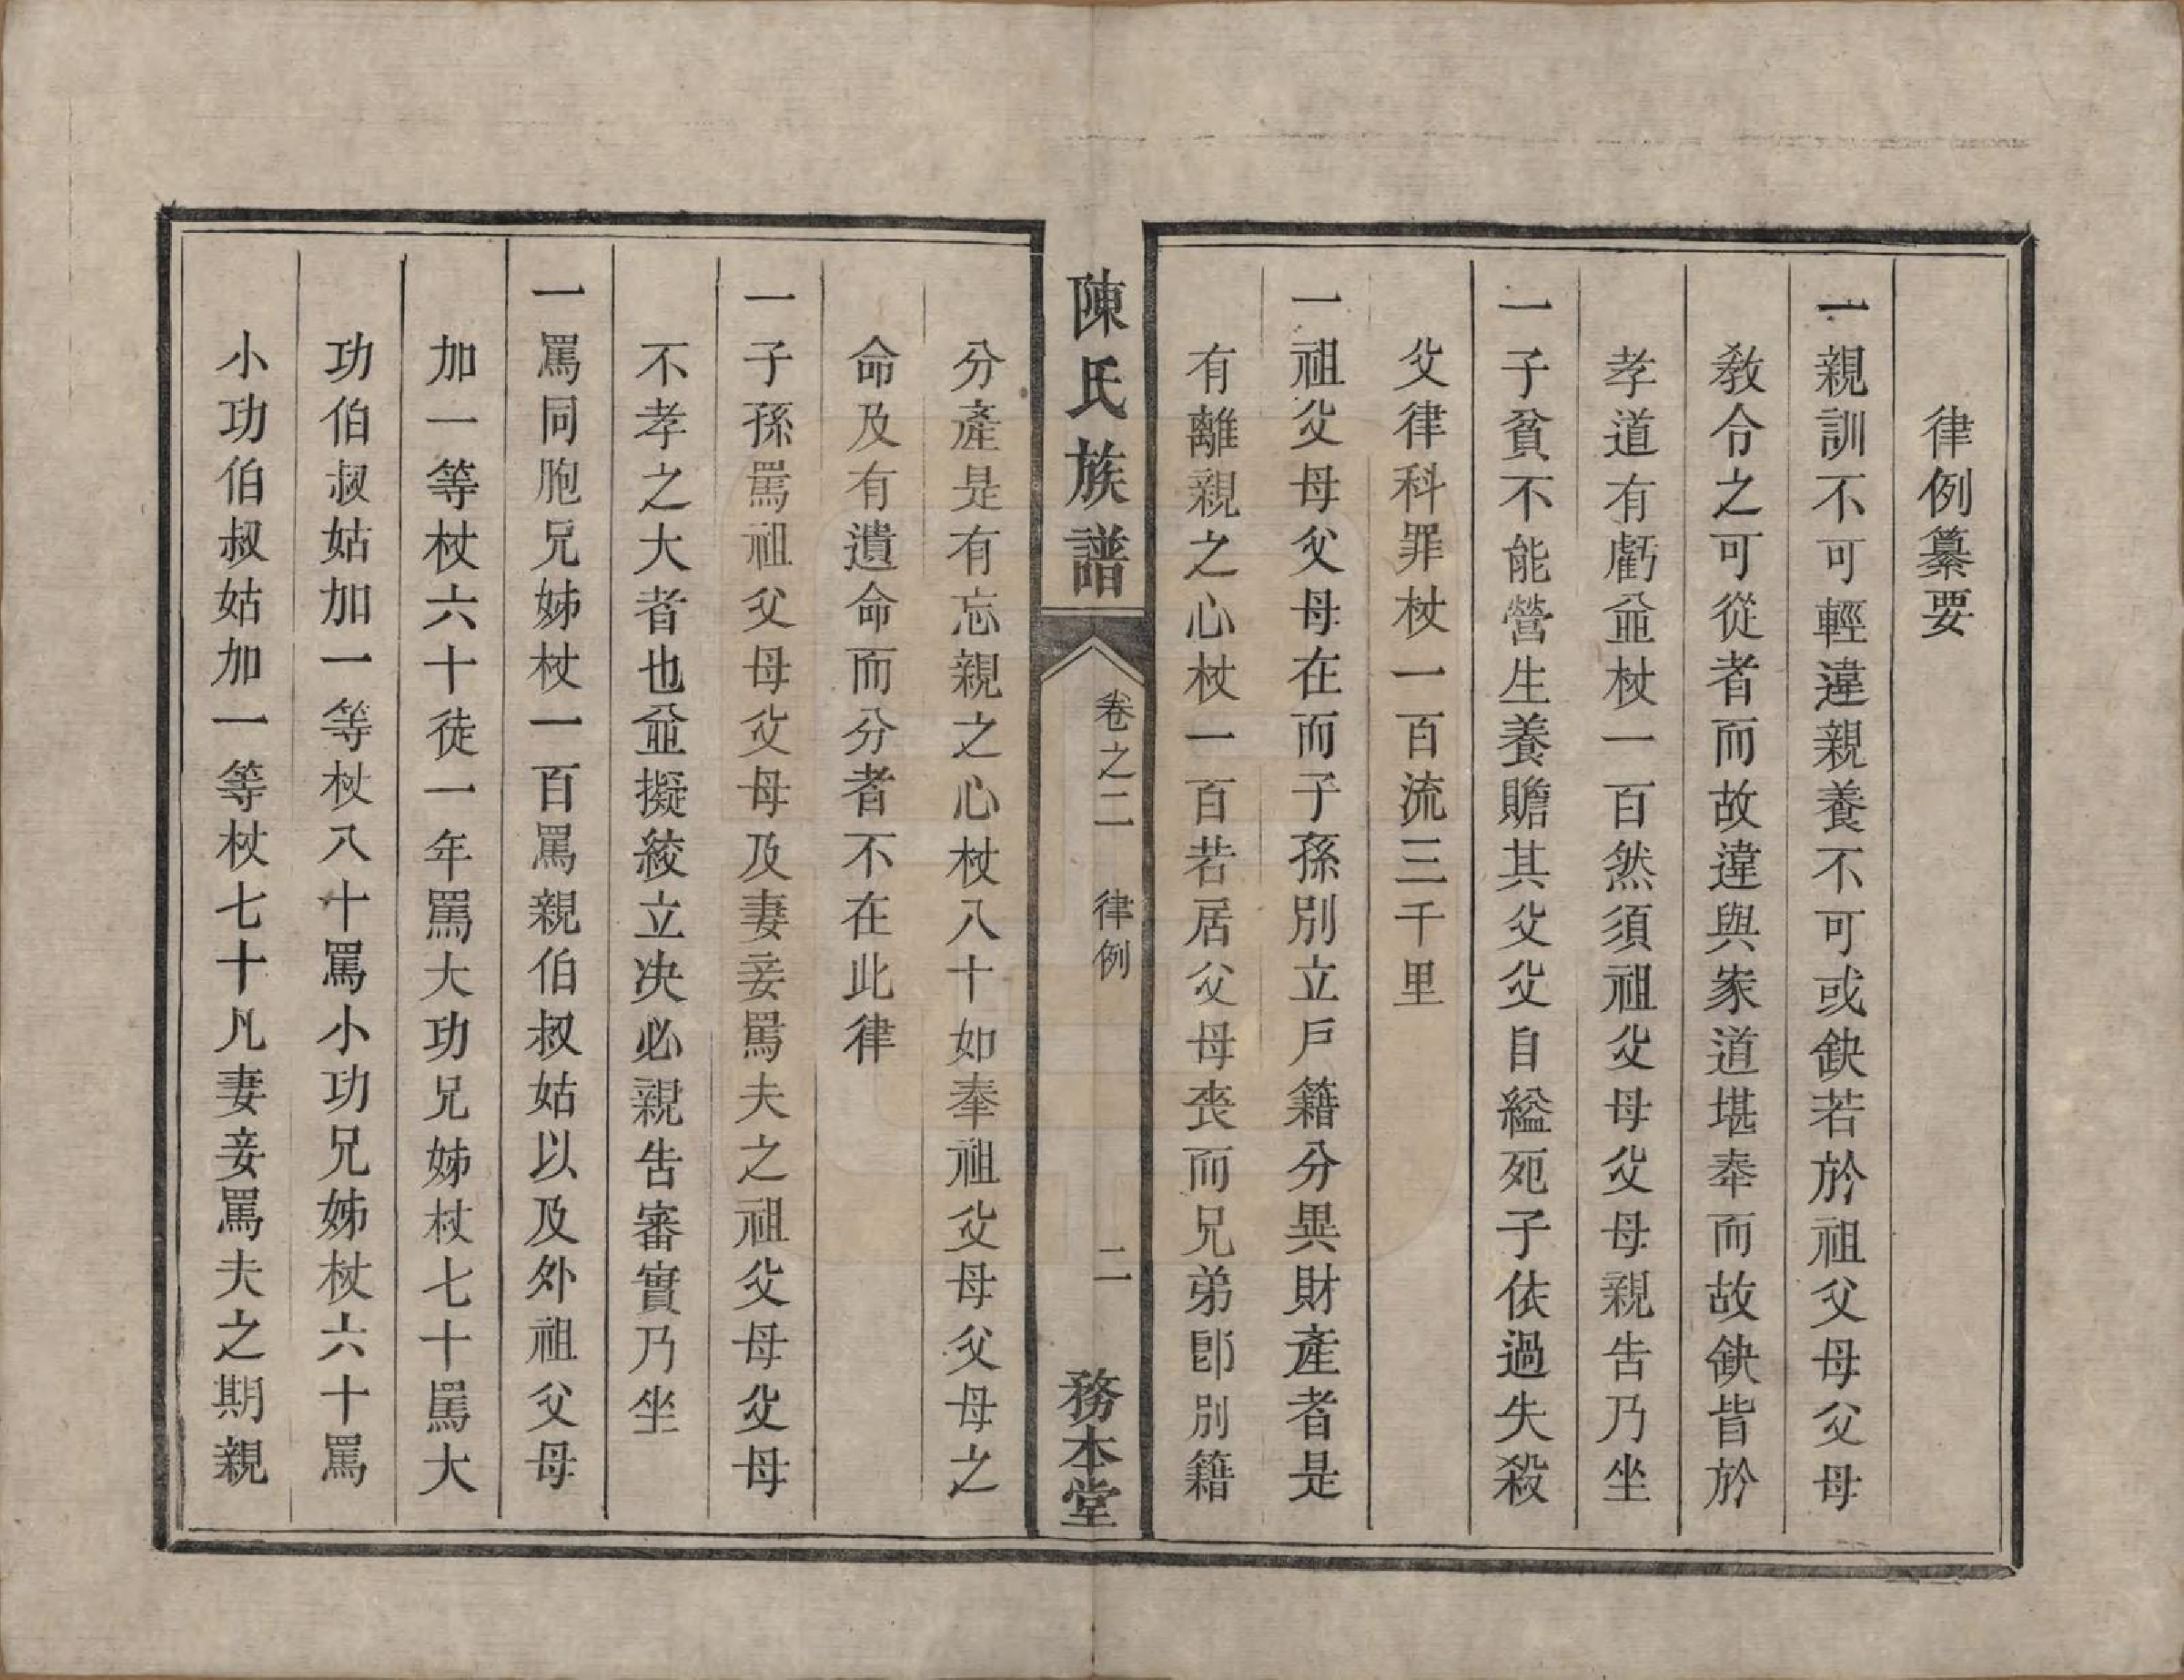 律例纂要
一親訓不可輕違親養不可或缺若於祖父母父母
教令之可從者而故違與家道堪奉而故缺皆於
孝道有虧並杖一百然須祖父母父母親告乃坐
一子貧不能營生養贍其父父自縊死子依過失殺
父律科罪杖一百流三千里
一祖父母父母在而子孫別立戶籍分異財產者是
有離親之心杖一百若居父母喪而兄弟即別籍
陳氏族譜
卷之二　律例
二
務本堂
分產是有忘親之心杖八十如奉祖父母父母之
命及有遺命而分者不在此律
一子孫罵祖父母父母及妻妾罵夫之祖父母父母
不孝之大者也並擬絞立决必親告審實乃坐
一罵同胞兄姊杖一百罵親伯叔姑以及外祖父母
加一等杖六十徒一年罵大功兄姊杖七十罵大
功伯叔姑加一等杖八十罵小功兄姊杖六十罵
小功伯叔姑加一等杖七十凡妻妾罵夫之期親